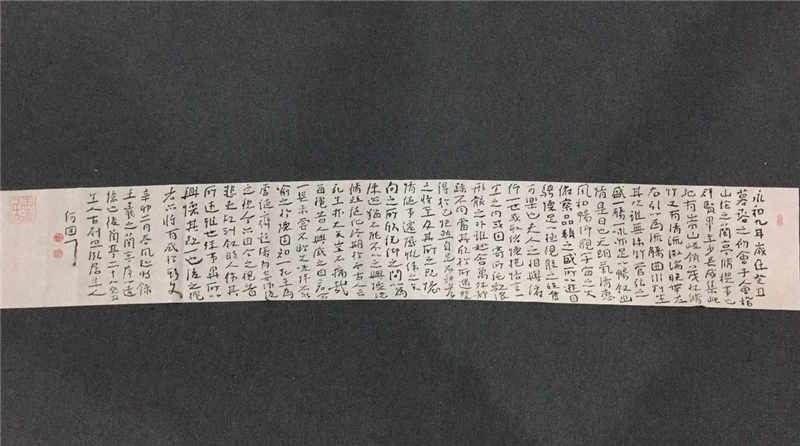 永和九年歲在癸丑
暮春之初會于會稽
山陰之蘭亭脩禊事也
群賢畢至少長咸集此
地有崇山峻領茂林脩
竹又有清流激湍映帶左
右引以為流觴曲水列坐
其次雖無絲竹管弦之
盛一觴一詠亦足以暢敘幽
情是日也天朗氣清惠
風和暢仰觀宇宙之大
俯察品類之盛所以遊目
騁懷足以極視聽之娛信
可樂也夫人之相與俯
仰一世或取諸懷抱悟言一
室之內或因寄所託放浪
形骸之外雖趣舍萬殊靜
躁不同當其欣於所遇暫
得於己快然自足不知老
之將至及其所之既惓
情隨事遷感慨係之矣
向之所欣俛仰之間以為
陳迹猶不能不以之興懷況
脩短隨化終期於盡古人云
死生亦大矣豈不痛哉
每攬昔人興感之由若合
一契未嘗不臨文嗟悼不能
喻之於懷固知一死生為
虛誕齊彭殤為妄作後
之視今亦由今之視昔
悲夫故列敘時人錄其
所述雖世殊事異所以
興懷其致一也後之攬
者亦將有感於斯文
辛卯二月春風
王羲之蘭亭序一通